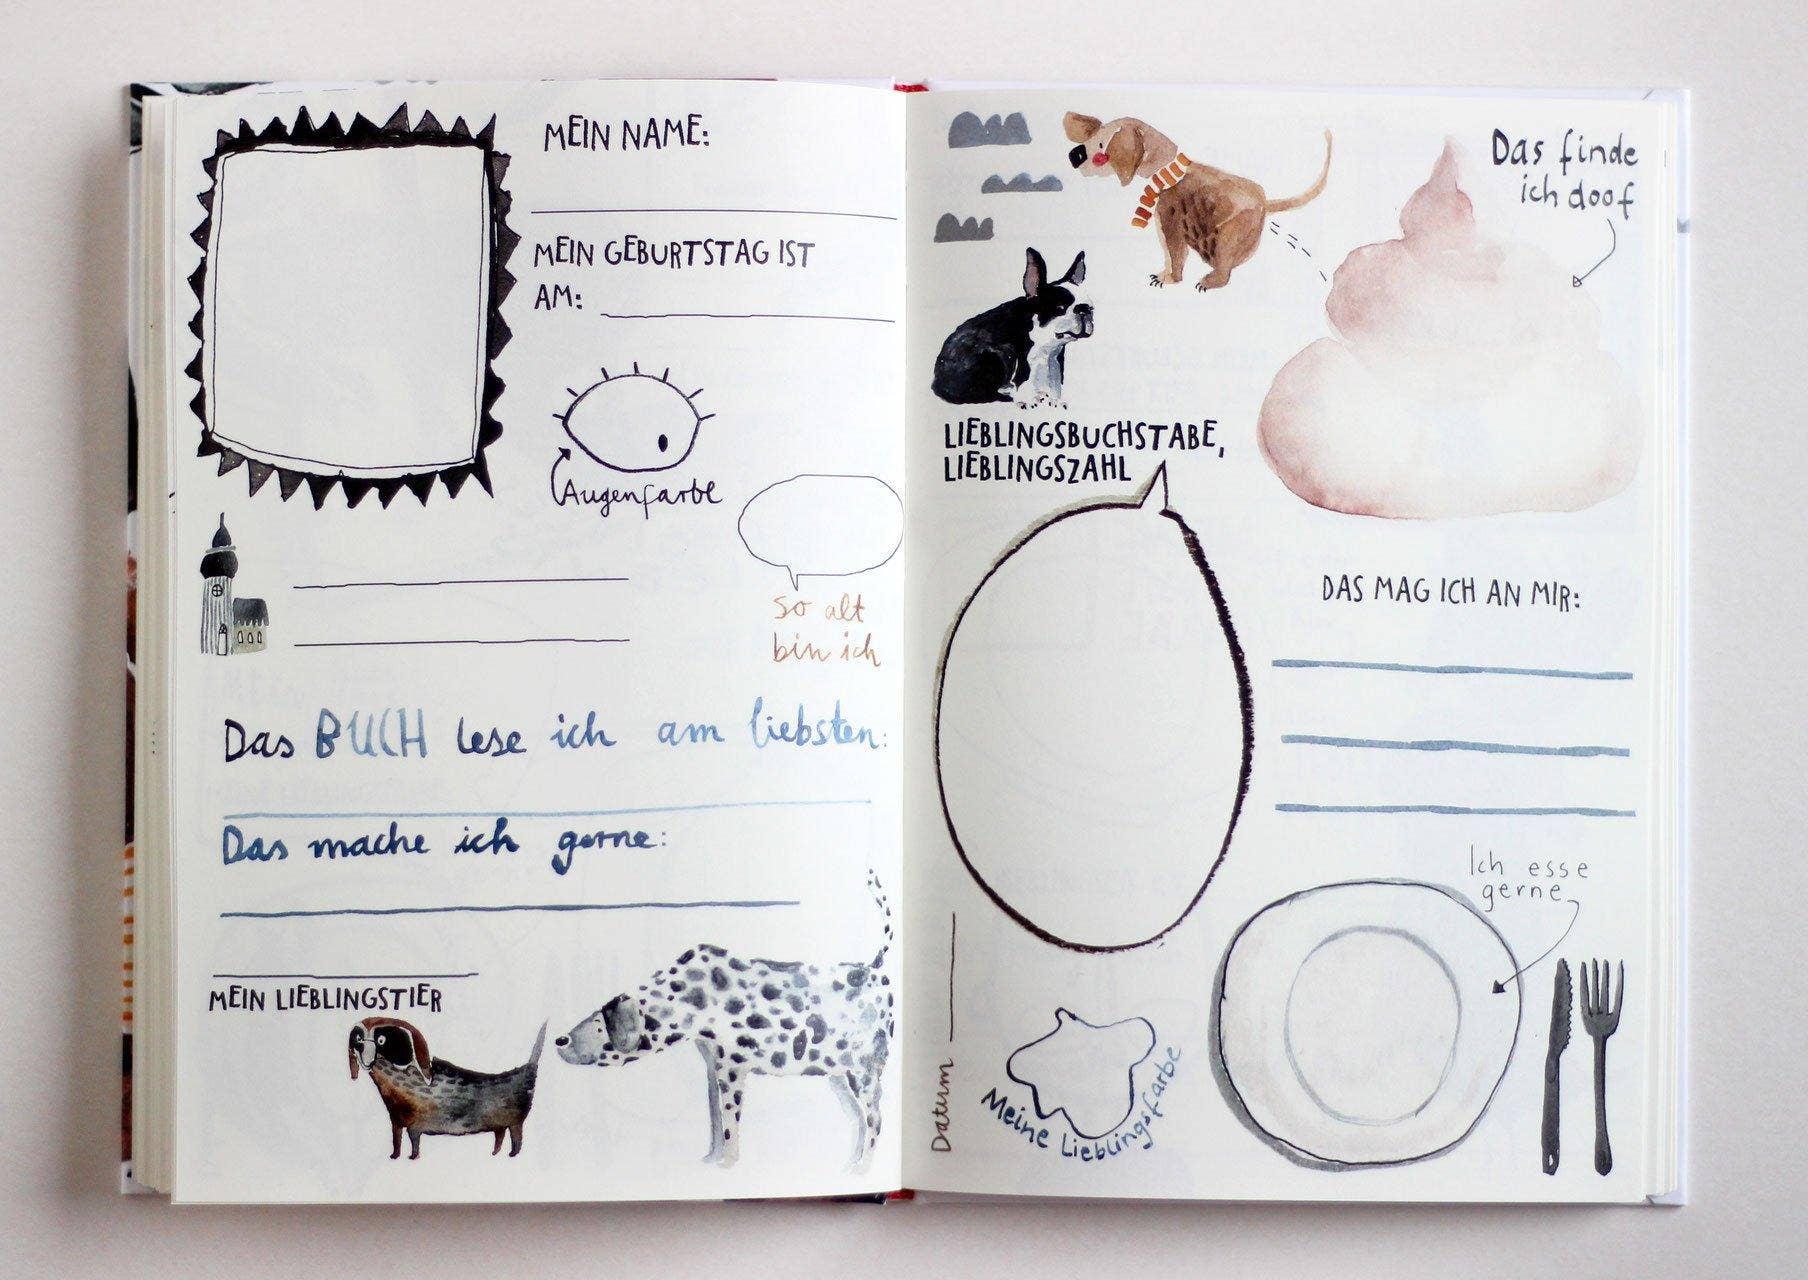 MEIN NAME:
MEIN GEBURTSTAG IST
AM:
Augenfarbe
So alt
bin ich
Das BUCH lese ich am liebsten:
Das mache ich gerne:
MEIN LIEBLINGSTIER
Das finde
ich doof
LIEBLINGSBUCHSTABE,
LIEBLINGSZAHL
DAS MAG ICH AN MIR:
Ich esse
gerne
Datum
Meine Lieblingsfarbe